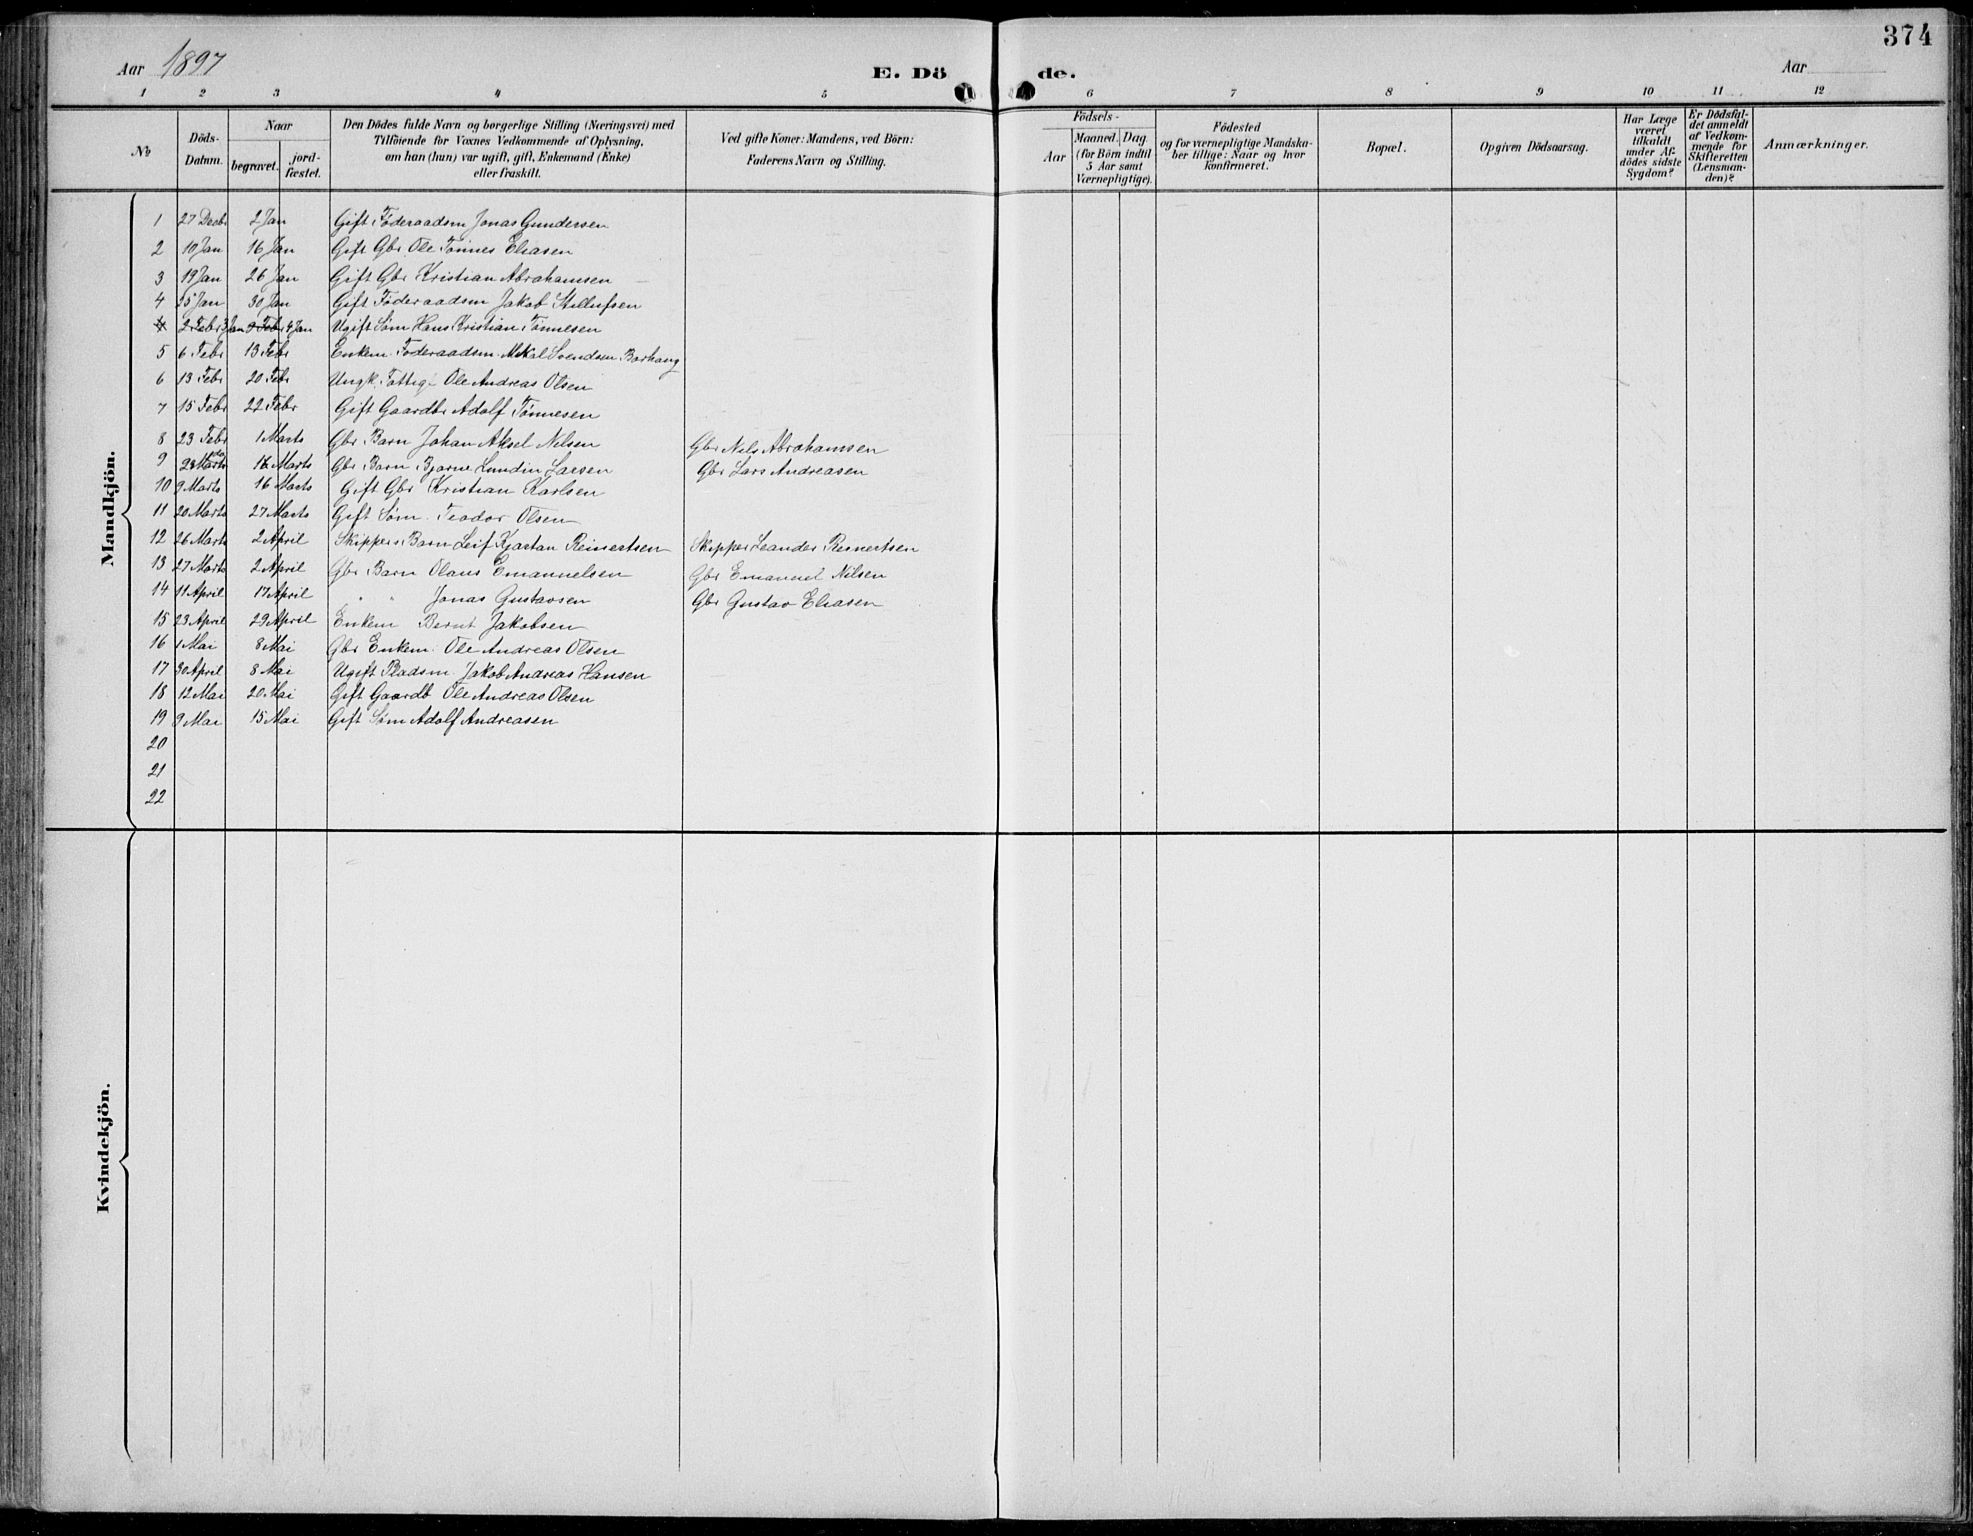 374
Aar 1897
E. Dö de.
Aar
1 2 3 4 5 6 7 8 9 10 11 12
No
Döds-Datum.
Naar
begravet.
jord-fæstet.
Den Dödes fulde Navn og borgerlige Stilling (Næringsvei) med
Tilföiende for Voxnes Vedkommende af Oplysning,
om han (hun) var ugift, gift, Enkemand (Enke)
eller fraskilt.
Ved gifte Koner: Mandens, ved Börn:
Faderens Navn og Stilling.
Födsels-
Aar
Maaned. Dag
(for Börn indtil
5 Aar samt
Værnepligtige).
Födested
og for værnepligtige Mandska-
ber tillige: Naar og hvor
konfirmeret.
Bopæl.
Opgiven Dödsaarsag.
Har Læge
været
tilkaldt
under Af-
dödes sidste
Sygdom?
Er Dödsfal-
det anmeldt
af Vedkom-
mende for
Skifteretten
(Lensman-
den)?
Anmærkninger.
Mandkjön.
1 27 Decbr 2 Jan Gift Föderaadsm Jonas Gundersen
2 10 Jan 16 Jan Gift Gbr Ole Tönnes Eliasen
3 19 Jan 26 Jan Gift Gbr Kristian Abrahamsen
4 25 Jan 30 Jan Gift Föderaadsm Jakob
2 Febr 3 Jan 9 Febr 4 Jan Ugift Söm Hans Kristian Tönnesen
5 6 Febr 13 Febr Enkem. Föderaadsm Mikal Svendsen
6 13 Febr 20 Febr Ungk. Fattig Ole Andreas Olsen
7 15 Febr 22 Febr Gift Gaardbr Adolf Tönnesen
8 23 Febr 1 Marts Gbr Barn Johan Aksel Nilsen Gbr Nils Abrahamsen
9 Marts 16 Marts Gbr Barn Bjarne Lundin Larsen Gbr Lars Andreasen
10 9 Marts 16 Marts Gift Gbr Kristian Karlsen
11 20 Marts 27 Marts Gift Söm. Teodor Olsen
12 26 Marts 2 April Skippers Barn Leif Kjartan Reinertsen Skipper Leander Reinertsen
13 27 Marts 2 April Gbr Barn Olaus Emanuelsen Gbr Emanuel Nilsen
14 11 April 17 April " " Jonas Gustavsen Gbr Gustav Eliasen
15 23 April 29 April Enkem Bernt Jakobsen
16 1 Mai 8 Mai Gbr Enkem. Ole Andreas Olsen
17 30 April 8 Mai Ugift Pladsm Jakob Andreas Hansen
18 12 Mai 20 Mai Gift Gaardb Ole Andreas Olsen
19 9 Mai 15 Mai Gift Söm Adolf Andreasen
20
21
22
Kvindekjön.